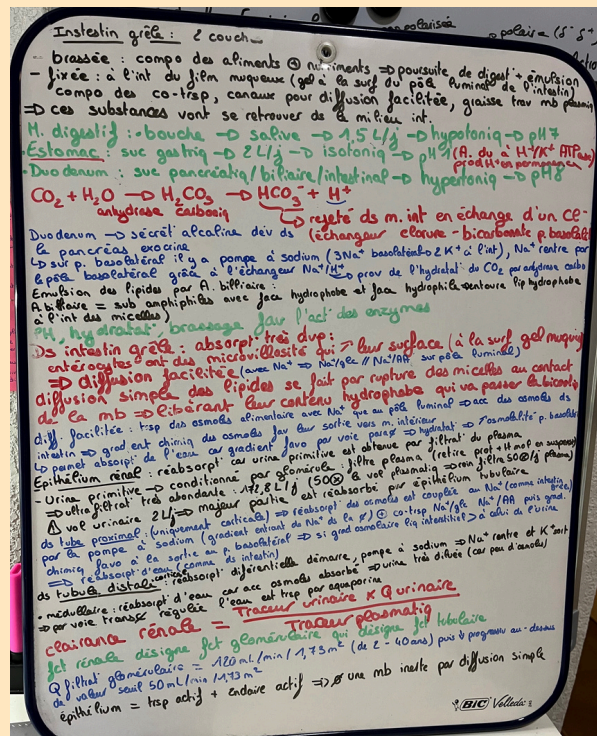 polarisée
polaire (δ⁻ δ⁺,
Instestin grêle : 2 couch
- brassée : compo des aliments ⊕ nutriments ⇒ poursuite de digest° + émulsion
- fixée : à l'int du film muqueux (gel à la surf du pôle luminal de l'intestin)
compo des co-trsp, canaux pour diffusion facilitée, graisse trav mb plasmiq
⇒ ces substances vont se retrouver de la milieu int.
M. digestif : • bouche → salive → 1,5 L/j → hypotoniq → pH7
• Estomac : suc gastriq → 2L/j → isotoniq → pH 1 (A. du à H⁺/K⁺ ATPase)
prod H⁺ en permanence
• Duodenum : suc pancréatiq/biliaire/intestinal → hypertoniq → pH8
CO₂ + H₂O → H₂CO₃ → HCO₃⁻ + H⁺
anhydrase carboniq
rejeté ds m. int en échange d'un Cl⁻
(échangeur clorure - bicarbonate p. basolat)
Duodenum → sécrét° alcaline dév ds
le pancréas exocrine
↳ sur p. basolatéral il y a pompe à sodium (3Na⁺ basolatéral → 2 K⁺ à l'int), Na⁺ rentre par
le pôle basolatéral grâce à l'échangeur Na⁺/H⁺
→ prov de l'hydratat° du CO₂ par anhydrase carbo
Emulsion des lipides par A. billiaire :
A billiaire = sub amphiphiles avec face hydrophobe et face hydrophile entoure lip hydrophobe
à l'int des micelles)
PH, hydratat°, brassage fav l'act des enzymes
Ds intestin grêle : absorpt° très dvp :
entérocytes ont des microvillosité qui ↗ leur surface (à la surf gel muqueux)
⇒ diffusion facilitée (avec Na⁺ ⇒ Na⁺/glc // Na⁺/AA sur pôle luminal)
diffusion simple des lipides se fait par rupture des micelles au contact
de la mb ⇒ libérant leur contenu hydrophobe qui va passer la bicouche
diff. facilitée : trsp des osmoles alimentaire avec Na⁺ que au pôle luminal ⇒ acc des osmoles ds
intestin ⇒ grad ent chimiq des osmoles fav leur sortie vers m. intérieur ⇒ ↗ osmolalité p. basolat
↳ permet absorpt° de l'eau car gradient favo par voie parag ⇒ hydratat°
Epithélium rénal : réabsorpt° car urine primitive est obtenue par filtrat° du plasma
- Urine primitive → conditionné par glomérule : filtre plasma (retire prot + H mol en suspens)
⇒ ultrafiltrat très abondante : 172,8 L/j (50⊗ le vol plasmatiq ⇒ rein filtre 50⊗/j plasma)
⚠ vol urinaire 2L/j ⇒ majeur partie est réabsorbé par épithélium tubulaire
ds tube proximal : (uniquement corticale) ⇒ réabsorpt° des osmoles est couplée au Na⁺ (comme intestin grêle)
par la pompe à sodium (gradient entrant de Na⁺ ds la ¢) ⊕ co-trsp Na⁺/glc Na⁺/AA puis grad.
chimiq favo à la sortie au p. basolatéral ⇒ si grad osmolaire liq interstitiel > à celui de l'urine
⇒ réabsorpt° d'eau (comme ds intestin)
ds tubule distal : • corticale : réabsorpt° diférentielle démarre, pompe à sodium ⇒ Na⁺ rentre et K⁺ sort
• médullaire : réabsorpt° d'eau car acc osmoles absorbé ⇒ urine très diluée (car peu d'osmoles)
⇒ par voie transç régulée l'eau est trsp par aquaporine
clairance rénale = Traceur urinaire × Q urinaire
Traceur plasmatiq
fct rénale désigne fct glomérulaire qui désigne fct tubulaire
Q filtrat° glomérulaire = 120 mL/min/1,73m² (de 2 - 40ans) puis ↓ progressiv au-dessus
de valeur seuil 50 mL/min/1,73 m²
épithélium = trsp actif + IIndaire actif ⇒ ∅ une mb inerte par diffusion simple
BIC Velleda